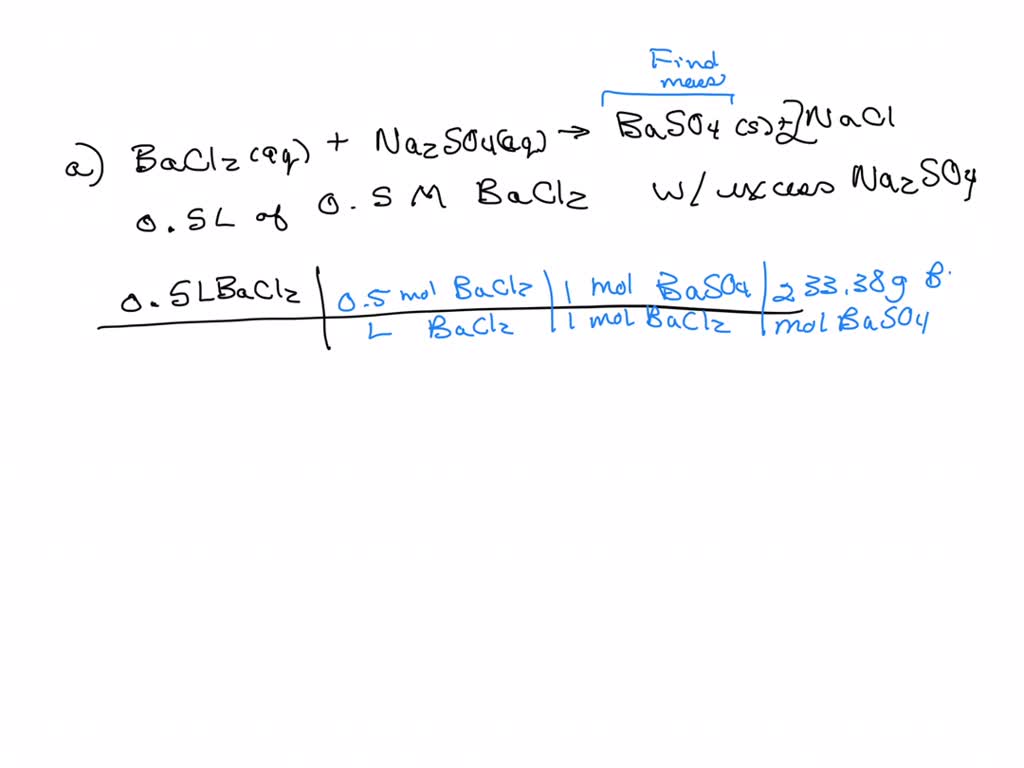 Find
mass
a) BaCl2 (aq) + Na2SO4(aq) → BaSO4 (s) + 2NaCl
0.5L of 0.5 M BaCl2 w/ excess Na2SO4
0.5L BaCl2 | 0.5 mol BaCl2 | 1 mol BaSO4 | 233.38g B
L BaCl2 | 1 mol BaCl2 | mol BaSO4